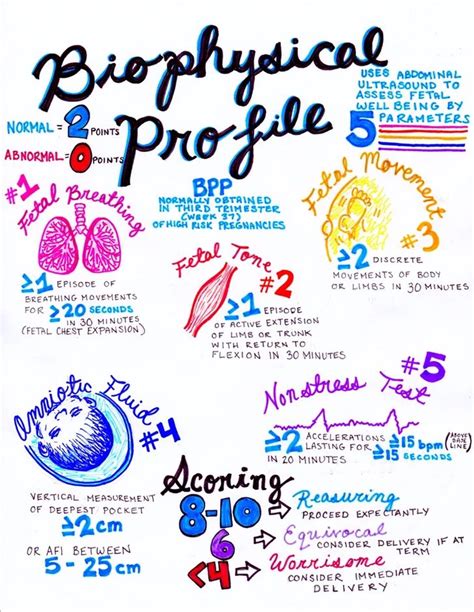 Biophysical
Profile
NORMAL = 2 POINTS
ABNORMAL = 0 POINTS
USES ABDOMINAL
ULTRASOUND TO
ASSESS FETAL
WELL BEING BY
5 PARAMETERS
BPP
NORMALLY OBTAINED
IN THIRD TRIMESTER
(WEEK 37)
OF HIGH RISK PREGNANCIES
#1
Fetal Breathing
≥1 EPISODE OF
BREATHING MOVEMENTS
FOR ≥20 SECONDS
IN 30 MINUTES
(FETAL CHEST EXPANSION)
Fetal Tone
#2
≥1 EPISODE
OF ACTIVE EXTENSION
OF LIMB OR TRUNK
WITH RETURN TO
FLEXION IN 30 MINUTES
Fetal Movement
#3
≥2 DISCRETE
MOVEMENTS OF BODY
OR LIMBS IN 30 MINUTES
Amniotic Fluid
#4
VERTICAL MEASUREMENT
OF DEEPEST POCKET
≥2cm
OR AFI BETWEEN
5-25cm
#5
Nonstress Test
≥2 ACCELERATIONS ≥15 bpm (ABOVE BASE LINE)
LASTING FOR ≥15 SECONDS
IN 20 MINUTES
Scoring
8-10 → Reasuring
PROCEED EXPECTANTLY
6 → Equivocal
CONSIDER DELIVERY IF AT
TERM
<4 → Worrisome
CONSIDER IMMEDIATE
DELIVERY